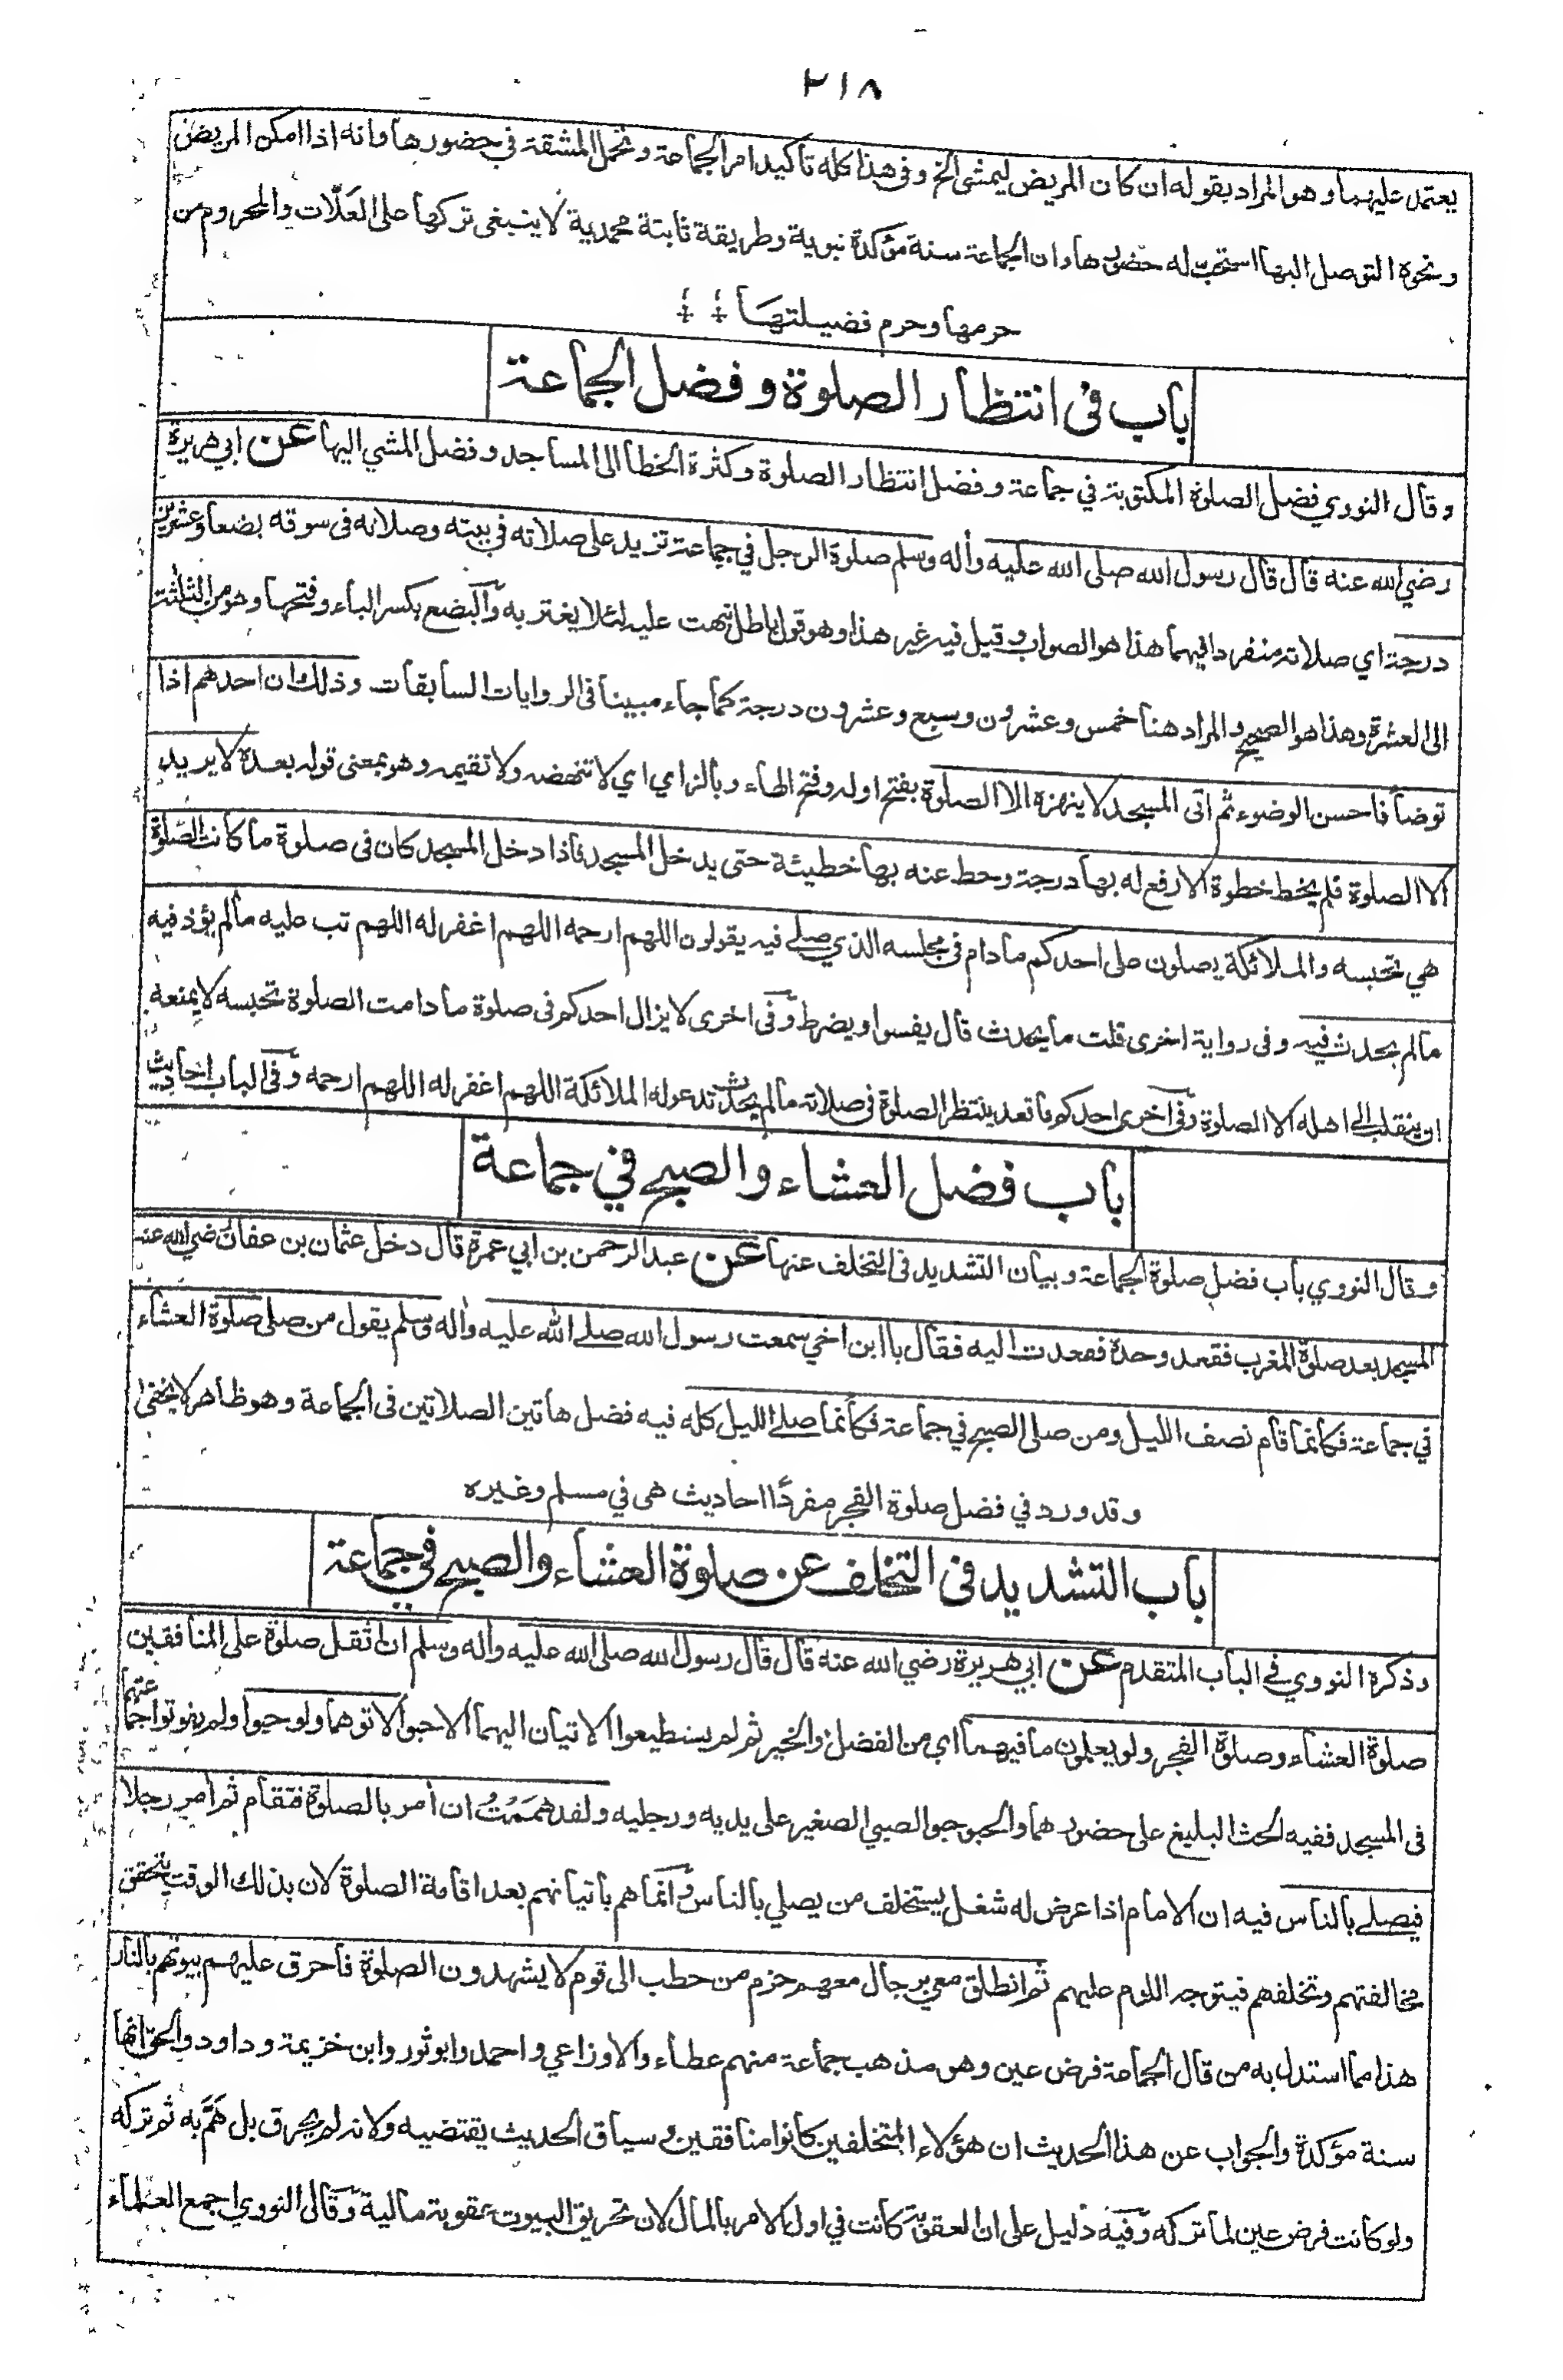 ٢١٨
يعتمد عليهما وهو المراد بقوله ان كان المريض ليمشى الخ وفى هذا كله تأكيد امر الجماعة وتحمل المشقة في حضورها وانه اذا امكن المريض
ونحوه التوصل اليها استحب له حضورها وان الجماعة سنة مؤكدة نبوية وطريقة ثابتة محمدية لا ينبغى تركها على العَلّات والمحروم من
حرمها وحرم فضيلتها
باب فى انتظار الصلوة وفضل الجماعة
وقال النووي فضل الصلوة المكتوبة في جماعة وفضل انتظار الصلوة وكثرة الخطا الى المساجد وفضل المشي اليها عن ابي هريرة
رضي الله عنه قال قال رسول الله صلى الله عليه وأله وسلم صلوة الرجل في جماعة تزيد على صلاته في بيته وصلاته فى سوقه بضعا وعشرين
درجة اي صلاته منفردا فيهما هذا هو الصواب وقيل فيه غير هذا وهو قول باطل نبهت عليه لئلا يغتر به والبضع بكسر الباء وفتحها وهو من الثلثة
الى العشرة وهذا هو الصحيح والمراد هنا خمس وعشرون وسبع وعشرون درجة كما جاء مبينا فى الروايات السابقات وذلك ان احدهم اذا
توضأ فاحسن الوضوء ثم اتى المسجد لا ينهزه الا الصلوة بفتح اوله وفتح الهاء وبالزاي اي لا تنهضه ولا تقيمه وهو بمعنى قوله بعده لا يريد
الا الصلوة فلم يخط خطوة الا رفع له بها درجة وحط عنه بها خطيئة حتى يدخل المسجد فاذا دخل المسجد كان فى صلوة ما كانت الصلوة
هي تحبسه والملائكة يصلون على احدكم ما دام فى مجلسه الذي صلے فيه يقولون اللهم ارحمه اللهم اغفر له اللهم تب عليه مالم يؤذ فيه
مالم يحدث فيه وفى رواية اخرى قلت ما يحدث قال يفسو او يضرط وفى اخرى لا يزال احدكم فى صلوة ما دامت الصلوة تحبسه لا يمنعه
ان ينقلب الى اهله الا الصلوة وفى اخرى احدكم ما قعد ينتظر الصلوة فى صلاته مالم يحدث تدعو له الملائكة اللهم اغفر له اللهم ارحمه وفى الباب احاديث
باب فضل العشاء والصبح في جماعة
وقال النووي باب فضل صلوة الجماعة وبيان التشديد فى التخلف عنها عن عبد الرحمن بن ابي عمرة قال دخل عثمان بن عفان رضي الله عنه
المسجد بعد صلوة المغرب فقعد وحده فقعدت اليه فقال يا ابن اخي سمعت رسول الله صلے الله عليه وأله وسلم يقول من صلى صلوة العشاء
في جماعة فكأنما قام نصف الليل ومن صلى الصبح في جماعة فكأنما صلے الليل كله فيه فضل هاتين الصلاتين فى الجماعة وهو ظاهر لا يخفى
وقد ورد في فضل صلوة الفجر مفردًا احاديث هى في مسلم وغيره
باب التشديد فى التخلف عن صلوة العشاء والصبح في جماعة
وذكره النووي في الباب المتقدم عن ابي هريرة رضي الله عنه قال قال رسول الله صلى الله عليه وأله وسلم ان اثقل صلوة على المنافقين
صلوة العشاء وصلوة الفجر ولو يعلمون ما فيهما اي من الفضل والخير ثم لم يستطيعوا الاتيان اليهما الا حبوا لاتوهما ولو حبوا ولم يفوتوا جماعتهما
فى المسجد ففيه الحث البليغ على حضورهما والحبو حبو الصبي الصغير على يديه ورجليه ولقد هَمَمْتُ ان أمر بالصلوة فتقام ثم أمر رجلا
فيصلے بالناس فيه ان الامام اذا عرض له شغل يستخلف من يصلي بالناس وانما هم باتيانهم بعد اقامة الصلوة لان بذلك الوقت يتحقق
مخالفتهم وتخلفهم فيتوجه اللوم عليهم ثم انطلق معي برجال معهم حزم من حطب الى قوم لا يشهدون الصلوة فأحرق عليهم بيوتهم بالنار
هذا مما استدل به من قال الجماعة فرض عين وهو مذهب جماعة منهم عطاء والاوزاعي واحمد وابو ثور وابن خزيمة وداود والحق انها
سنة مؤكدة والجواب عن هذا الحديث ان هؤلاء المتخلفين كانوا منافقين وسياق الحديث يقتضيه ولانه لم يحرق بل هَمَّ به ثم تركه
ولو كانت فرض عين لما تركه وفيه دليل على ان العقوبة كانت في اول الامر بالمال لان تحريق البيوت عقوبة مالية وقال النووي اجمع العلماء